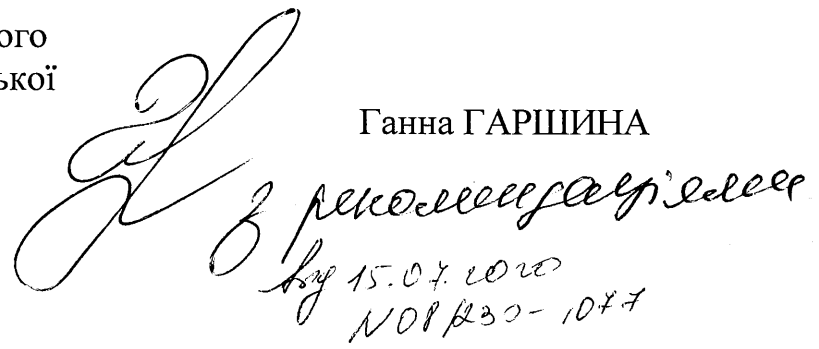 ого
ької
Ганна ГАРШИНА
з рекомендаціями
від 15.07.2020
N08/230-1077